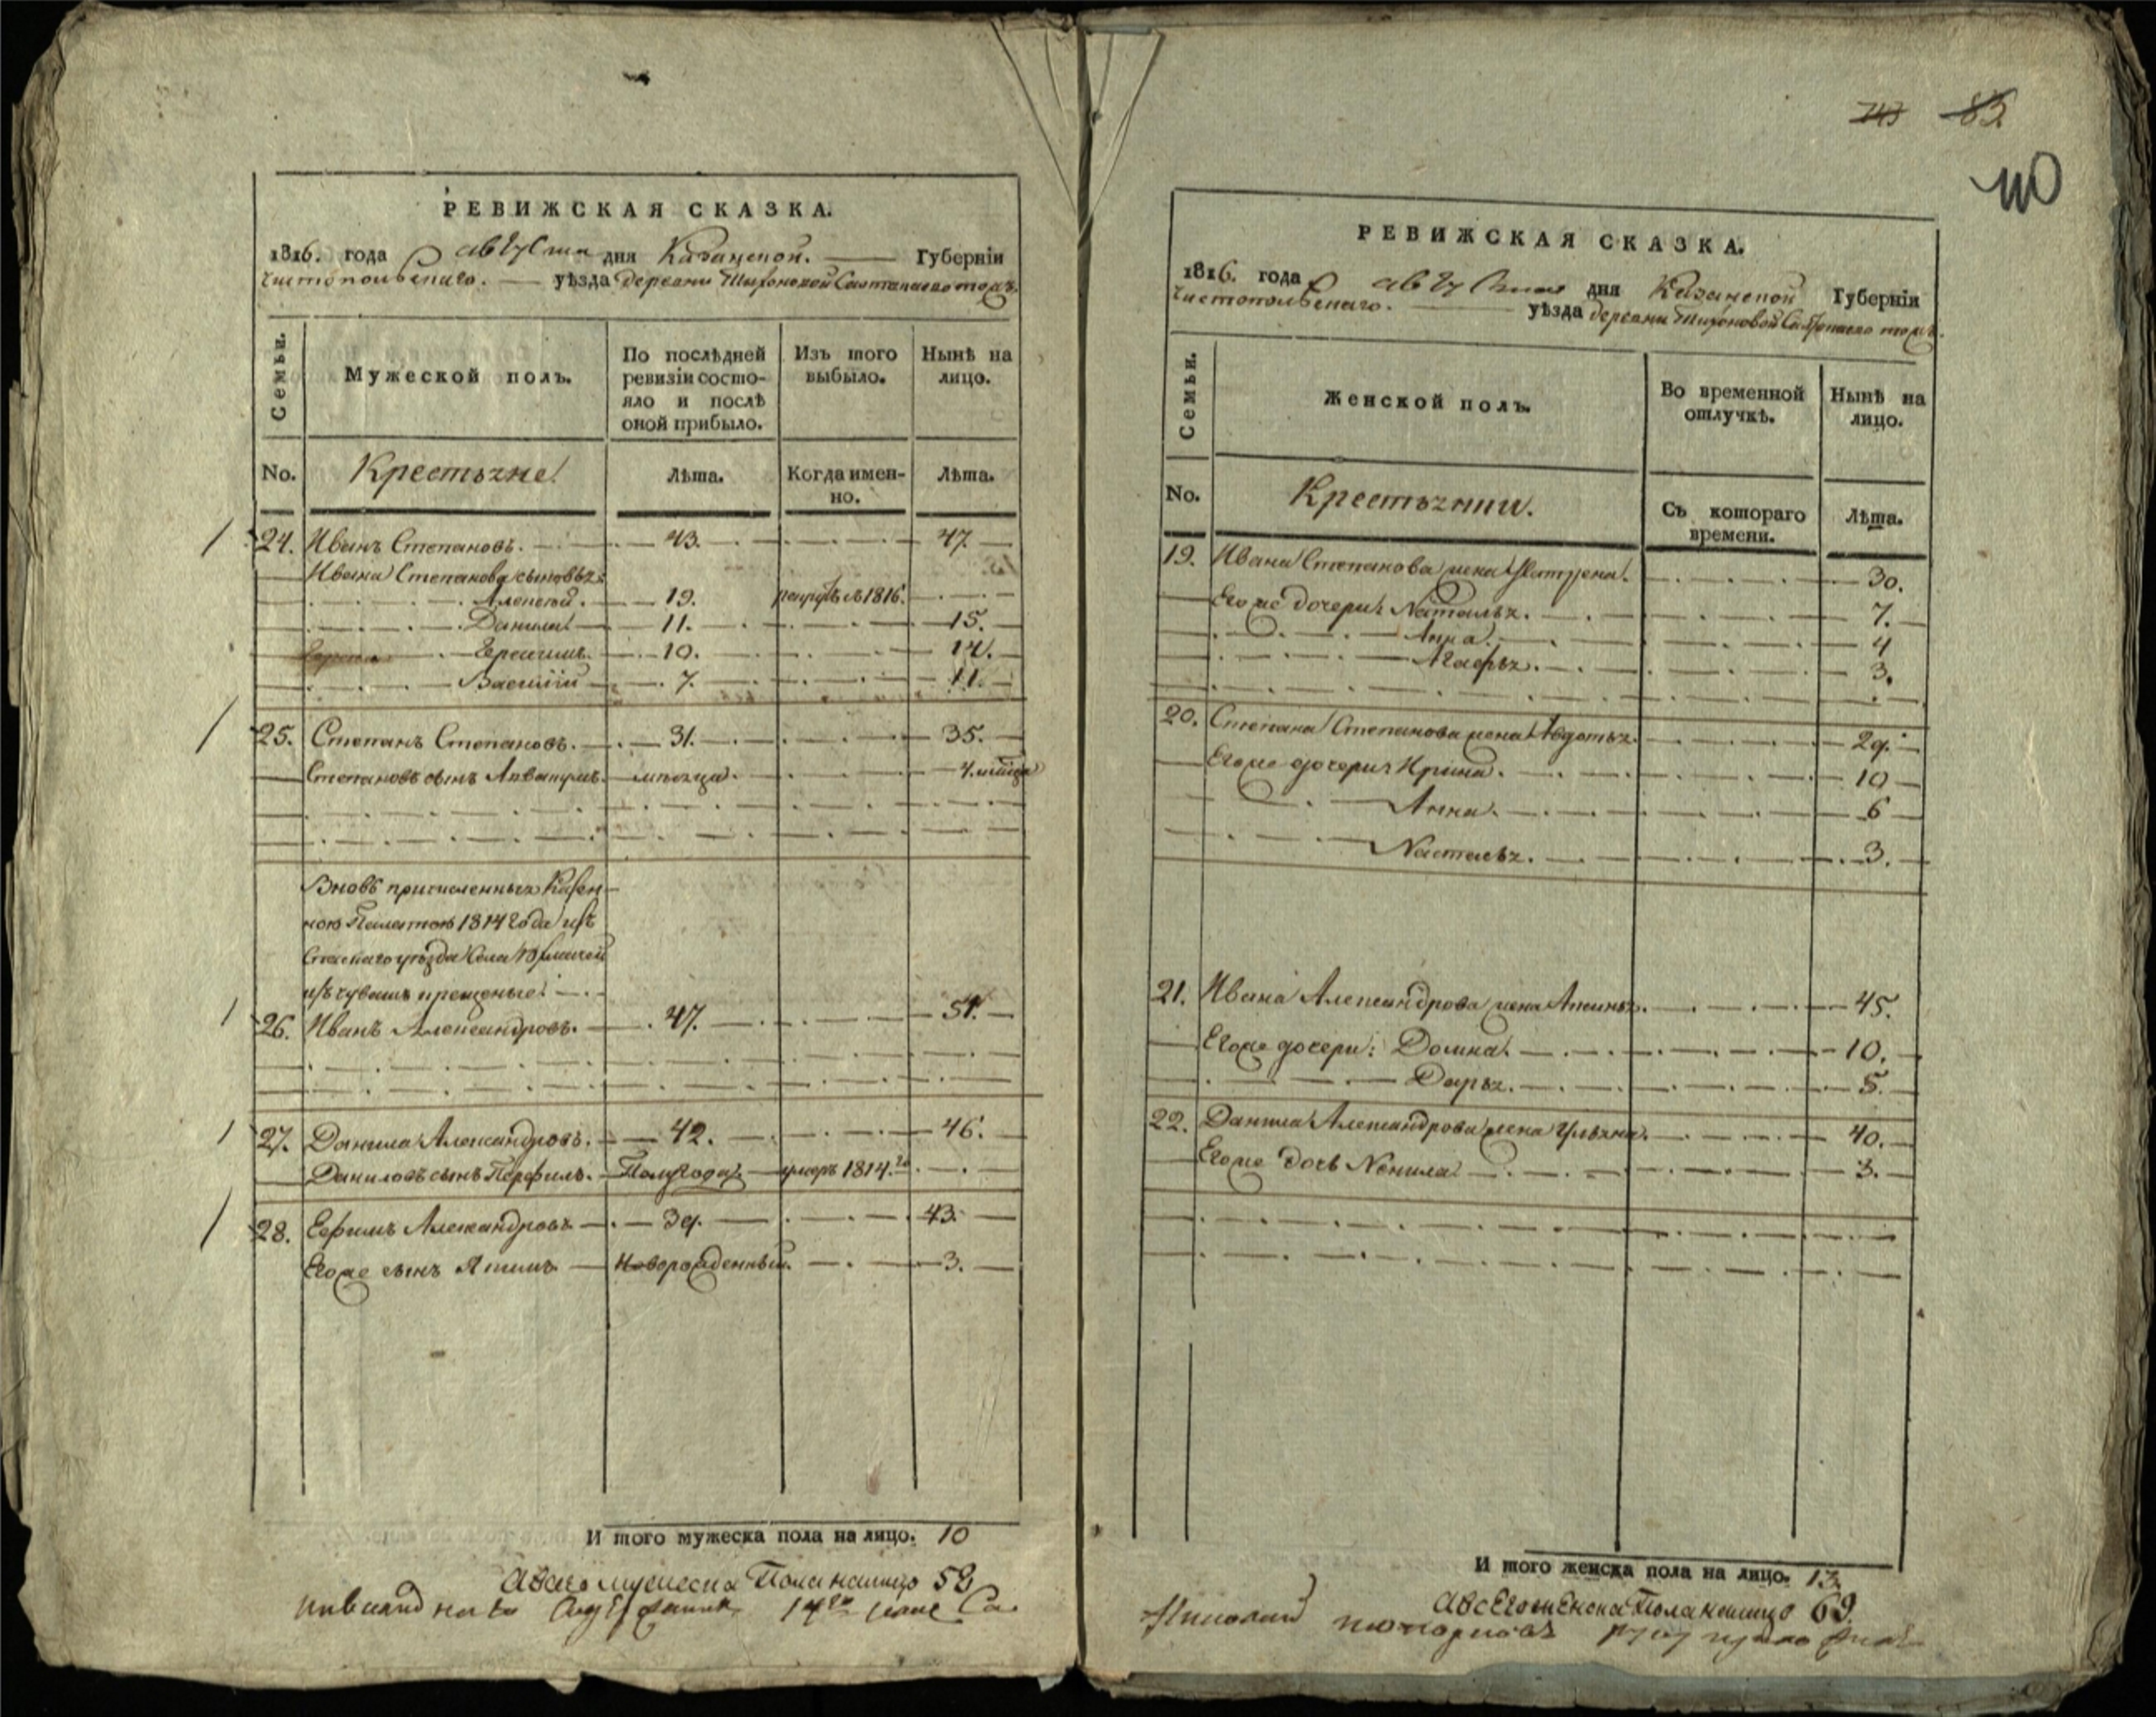 РЕВИЖСКАЯ СКАЗКА.
1816. года августа дня Казанской. Губерніи
Чистопольскаго. уѣзда деревни Тихоновой Салтанаево тожъ.
Семьи.
Мужеской полъ.
По послѣдней ревизіи состояло и послѣ оной прибыло.
Изъ того выбыло.
Нынѣ на лицо.
No. Крестьяне Лѣта. Когда именно. Лѣта.
24. Иванъ Степановъ. 43. 47.
Ивана Степанова сыновья:
Алексей. 19. рекрутъ в 1816.
Данила 11. 15.
Герасимъ. 10. 14.
Василій 7. 11.
25. Степанъ Степановъ. 31. 35.
Степановъ сынъ 4. мѣсяца
Вновь причисленныя Казен-
ною Палатою 1814 года изъ
Спаскаго уѣзда Села
изъ чувашъ крещеные:
26. Иванъ Александровъ. 47. 51.
27. Данила Александровъ. 42. 46.
Даниловъ сынъ Перфилъ. Полугода. умеръ 1814.го
28. Ефимъ Александровъ 39. 43.
Егоже сынъ Якимъ Новорожденный. 3.
И того мужеска пола на лицо. 10
А всего мужеска Пола налицо 52
РЕВИЖСКАЯ СКАЗКА.
1816. года августа дня Казанской Губерніи
Чистопольскаго. уѣзда деревни Тихоновой Салтанаево тожъ.
Семьи.
Женской полъ.
Во временной отлучкѣ.
Нынѣ на лицо.
No. Крестьянки. Съ котораго времени. Лѣта.
19. Ивана Степанова жена Матрена. 30.
Егоже дочери: Наталья. 7.
Анна. 4
Агафья. 3.
20. Степана Степанова жена Авдотья. 29.
Егоже дочери: Ирина. 10
Анна. 6
Наталья. 3.
21. Ивана Александрова жена Аксинья. 45.
Егоже дочери: Домна. 10.
Дарья. 5.
22. Данила Александрова жена Ульяна. 40.
Егоже дочь Ненила 3.
И того женска пола на лицо. 13.
А всего женска Пола налицо 69.
Николай руку приложилъ
83
110